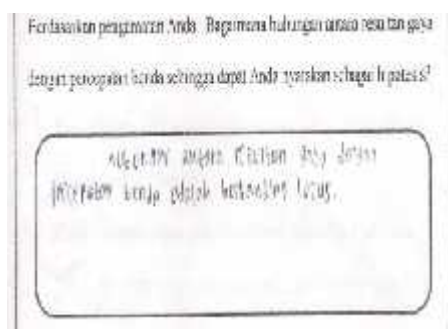 Berdasarkan pengamatan Anda. Bagaimana hubungan antara resultan gaya
dengan percepatan benda sehingga dapat Anda nyatakan sebagai hipotesis?
hubungan antara resultan gaya dengan
percepatan benda adalah berbanding lurus.